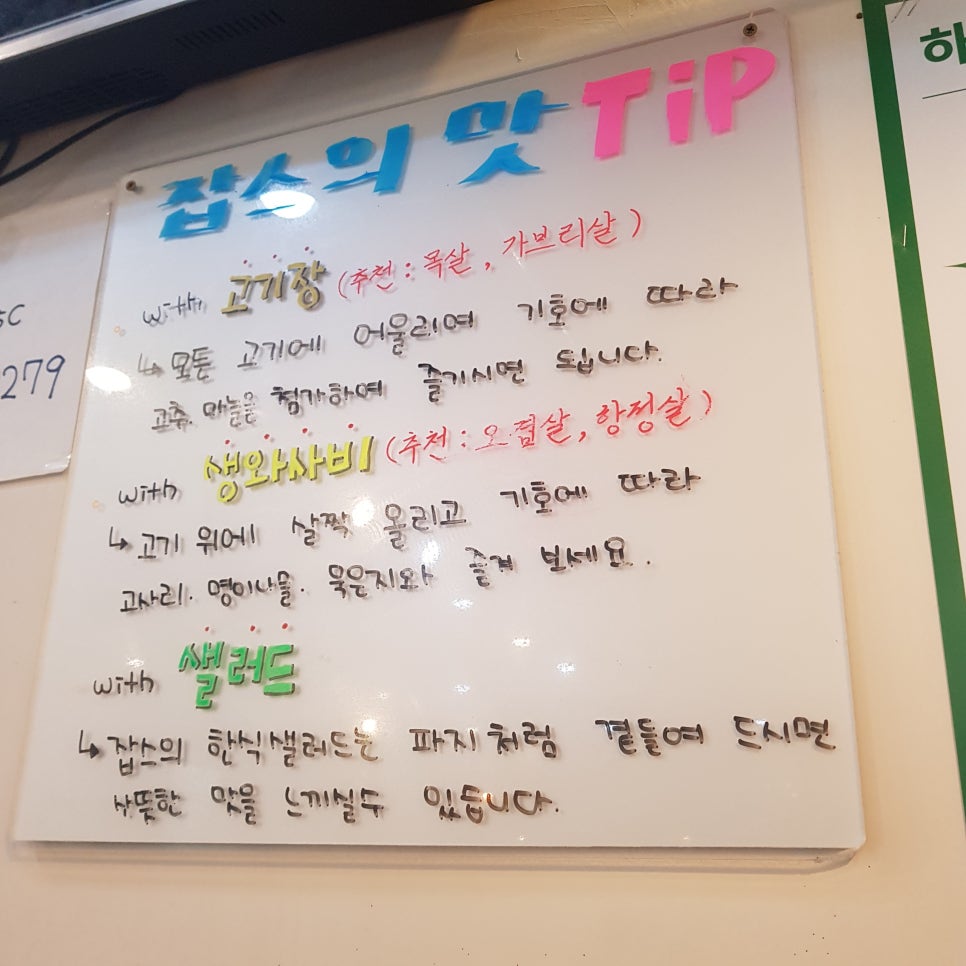 잡스의 맛 TiP
with 고기장 (추천 : 목살, 가브리살)
↳ 모든 고기에 어울리며 기호에 따라
고추. 마늘을 첨가하여 즐기시면 됩니다.
with 생와사비 (추천 : 오겹살, 항정살)
↳ 고기 위에 살짝 올리고 기호에 따라
고사리. 명이나물. 묵은지와 즐겨 보세요.
with 샐러드
↳ 잡스의 한식샐러드는 파지처럼 곁들여 드시면
산뜻한 맛을 느끼실수 있습니다.
5C
279
하